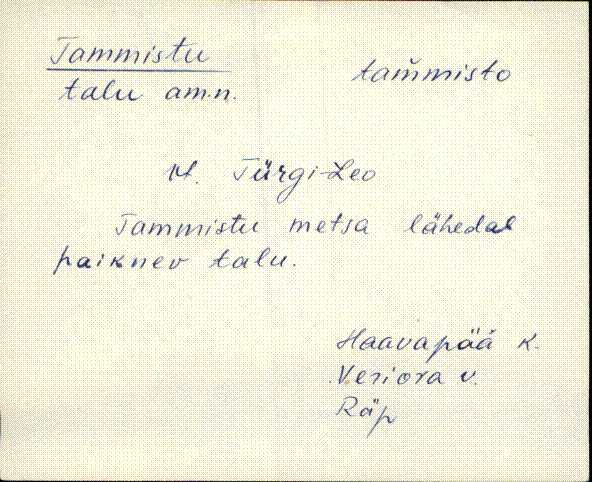 Tammistu
tam̀misto
talu am.n.
vt. Türgi-Leo
Tammistu metsa lähedal
paiknev talu.
Haavapää k.
Veriora v.
Räp